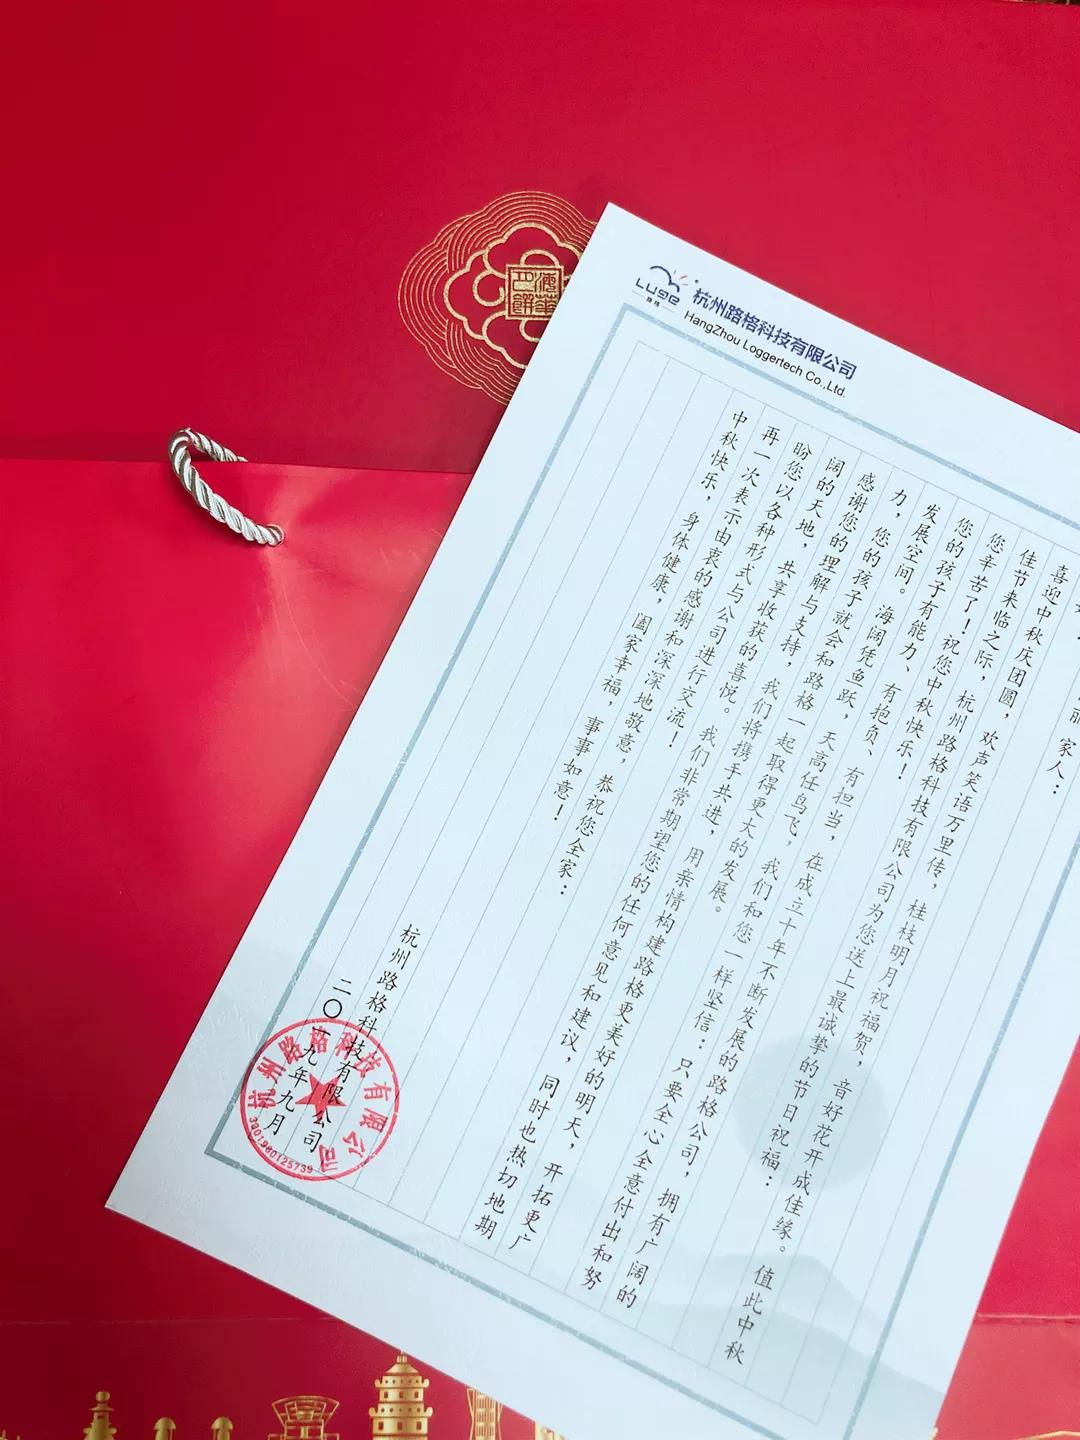 Luge
路格
杭州路格科技有限公司
HangZhou Loggertech Co.,Ltd.
家人：
喜迎中秋庆团圆，欢声笑语万里传，桂枝明月祝福贺，音好花开成佳缘。值此中秋
佳节来临之际，杭州路格科技有限公司为您送上最诚挚的节日祝福：
您辛苦了！祝您中秋快乐！
您的孩子有能力、有抱负、有担当，在成立十年不断发展的路格公司，拥有广阔的
发展空间。海阔凭鱼跃，天高任鸟飞，我们和您一样坚信：只要全心全意付出和努
力，您的孩子就会和路格一起取得更大的发展。
感谢您的理解与支持，我们将携手共进，用亲情构建路格更美好的明天，开拓更广
阔的天地，共享收获的喜悦。我们非常期望您的任何意见和建议，同时也热切地期
盼您以各种形式与公司进行交流！
再一次表示由衷的感谢和深深地敬意，恭祝您全家：
中秋快乐，身体健康，阖家幸福，事事如意！
杭州路格科技有限公司
二〇一九年九月
杭州路格科技有限公司
3301980125739